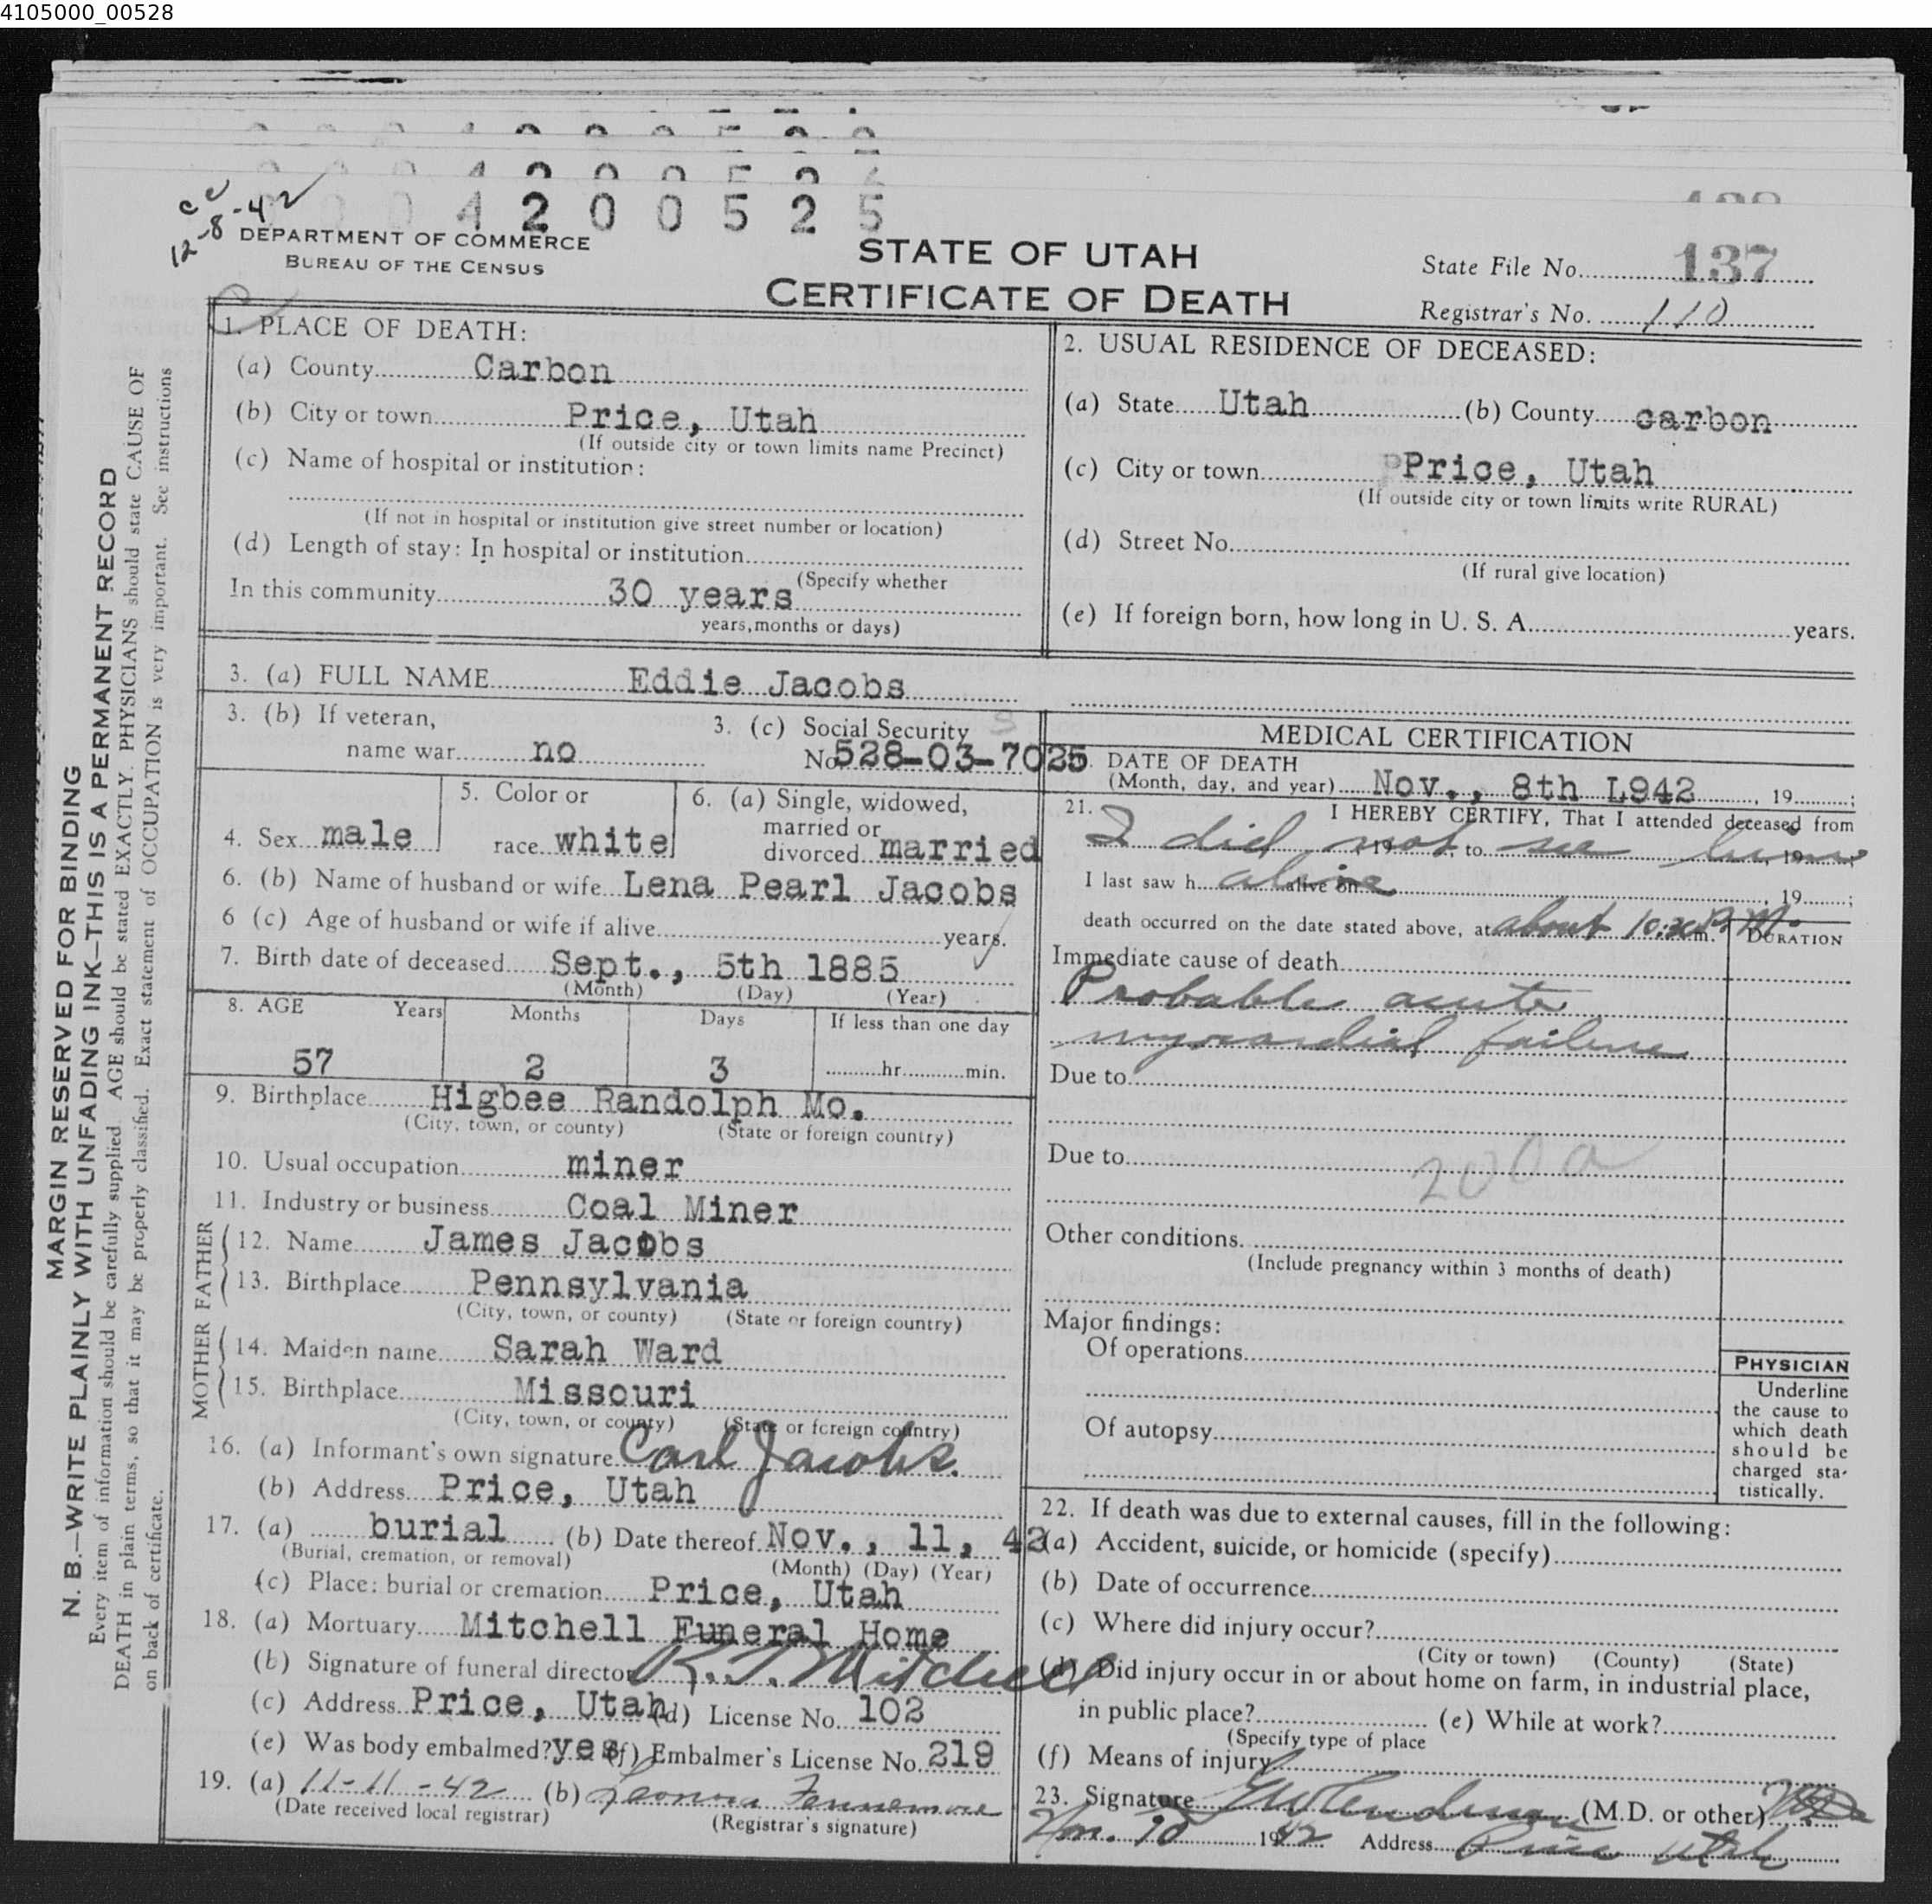 4105000_00528
4200525
cc
12-8-42
DEPARTMENT OF COMMERCE
BUREAU OF THE CENSUS
STATE OF UTAH
CERTIFICATE OF DEATH
State File No. 137
Registrar's No. 110
MARGIN RESERVED FOR BINDING
N. B.—WRITE PLAINLY WITH UNFADING INK—THIS IS A PERMANENT RECORD
Every item of information should be carefully supplied. AGE should be stated EXACTLY. PHYSICIANS should state CAUSE OF
DEATH in plain terms, so that it may be properly classified. Exact statement of OCCUPATION is very important. See instructions
on back of certificate.
1. PLACE OF DEATH:
(a) County Carbon
(b) City or town Price, Utah
(If outside city or town limits name Precinct)
(c) Name of hospital or institution:
(If not in hospital or institution give street number or location)
(d) Length of stay: In hospital or institution
(Specify whether
In this community 30 years
years, months or days)
2. USUAL RESIDENCE OF DECEASED:
(a) State Utah (b) County carbon
(c) City or town pPrice, Utah
(If outside city or town limits write RURAL)
(d) Street No.
(If rural give location)
(e) If foreign born, how long in U. S. A. years.
3. (a) FULL NAME Eddie Jacobs
3. (b) If veteran,
name war no
3. (c) Social Security
No. 528-03-7025
4. Sex male
5. Color or
race white
6. (a) Single, widowed,
married or
divorced married
6. (b) Name of husband or wife Lena Pearl Jacobs
6 (c) Age of husband or wife if alive years.
7. Birth date of deceased Sept., 5th 1885
(Month) (Day) (Year)
8. AGE Years Months Days If less than one day
57 2 3 hr. min.
9. Birthplace Higbee Randolph Mo.
(City, town, or county) (State or foreign country)
10. Usual occupation miner
11. Industry or business Coal Miner
FATHER
12. Name James Jacobs
13. Birthplace Pennsylvania
(City, town, or county) (State or foreign country)
MOTHER
14. Maiden name Sarah Ward
15. Birthplace Missouri
(City, town, or county) (State or foreign country)
16. (a) Informant's own signature Carl Jacobs.
(b) Address Price, Utah
17. (a) burial (b) Date thereof Nov., 11, 42
(Burial, cremation, or removal) (Month) (Day) (Year)
(c) Place: burial or cremation Price, Utah
18. (a) Mortuary Mitchell Funeral Home
(b) Signature of funeral director R. T. Mitchell
(c) Address Price, Utah (d) License No. 102
(e) Was body embalmed? yes (f) Embalmer's License No. 219
19. (a) 11-11-42 (b) Fennemore
(Date received local registrar) (Registrar's signature)
MEDICAL CERTIFICATION
DATE OF DEATH
(Month, day, and year) Nov., 8th L942, 19 ;
21. I HEREBY CERTIFY, That I attended deceased from
I did not see him
, 19 , to , 19 ;
I last saw h alive on alive , 19 ;
death occurred on the date stated above, at about 10:30 P. M. m.
DURATION
Immediate cause of death
Probable acute
myocardial failure
Due to
Due to
200a
Other conditions.
(Include pregnancy within 3 months of death)
Major findings:
Of operations
Of autopsy
PHYSICIAN
Underline
the cause to
which death
should be
charged sta-
tistically.
22. If death was due to external causes, fill in the following:
(a) Accident, suicide, or homicide (specify)
(b) Date of occurrence
(c) Where did injury occur?
(City or town) (County) (State)
(d) Did injury occur in or about home on farm, in industrial place,
in public place? (e) While at work?
(Specify type of place
(f) Means of injury
23. Signature (M.D. or other)
Nov. 10 1942 Address Price Utah